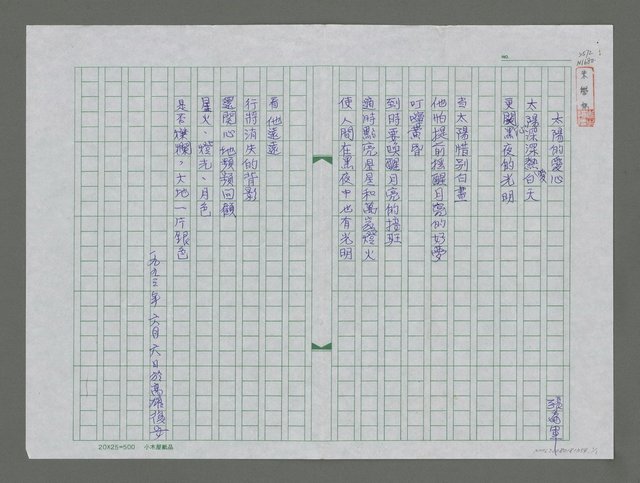 太陽的愛心
太陽深深熱愛白天
更關心黑夜的光明
當太陽惜別白晝
他怕提前搖醒月亮的好夢
叮嚀黃昏
到時要喚醒月亮的接班
適時點亮星星和萬家燈火
使人間在黑夜中也有光明
看他遠遠
行將消失的背影
還關心地頻頻回顧
星火、燈光、月色
是否燦爛，大地一片銀色
一九九三年六月六日於高雄
NO.
20X25=500 小木屋紙品